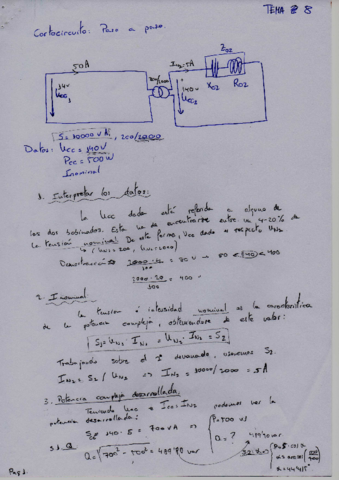 TEMA 8
Cortocircuito: Paso a paso.
50A
I_N2=5A
Z_02
X_02 R_02
14V
U_CC1
140V
U_CC2
S=10000 VA, 200/2000
Datos: U_CC = 140V
P_CC = 500W
I nominal
1. Interpretar los datos:
La U_CC dada está referida a alguno de
los dos bobinados. Esta ha de encontrarse entre un 4-20% de
la tensión nominal. De esta forma, U_CC dada a respecto U_N2
Demostración 2000·4/100 = 80V → 80 < 140 < 400
2000·20/100 = 400
2. I nominal
La tensión o intensidad nominal es la característica
de la potencia compleja, obteniéndose de este valor:
S_1 = U_N1 I_N1 = U_N2 I_N2 = S_2
Trabajando sobre el 2º devanado, usaremos S_2.
I_N2 = S_2 / U_N2 ⇒ I_N2 = 10000/2000 = 5A
3. Potencia compleja desarrollada.
Tomando U_CC e I_CC = I_N2 podemos ver la
potencia desarrollada:
S_CC 140·5 = 700VA ⇒ P=500 W
Q=?
Q = √(700² - 500²) = 489'90 var
Pag 1.